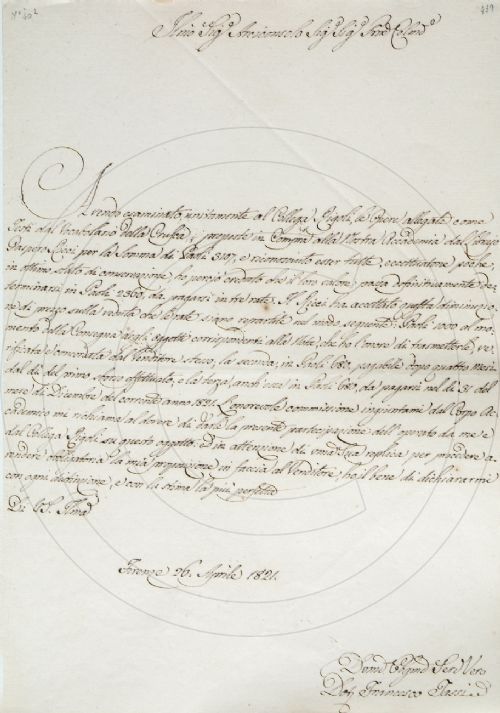 Illmo Sigr Arciconsolo Sigr Sigr Pron Colmo
Avendo esaminato, unitamente al Collega Rigoli, le Opere allegate come
Testi dal Vocabolario della Crusca, e proposte in Compra alla Nostra Accademia dal
Gaspero Ricci per la Somma di Paoli, e riconosciute esser tutte, eccettuatone poche,
in ottimo stato di conservazione, ho perciò creduto che il loro valore possa definitivamente de-
terminarsi in Paoli 2300, da pagarsi in tre rate. Il Ricci ha accettato questa diminuzio-
ne di prezzo sulla vendita che le rate siano repartite nel modo seguente: Paoli 1000 al mo-
mento della Consegna degli oggetti corrispondenti alla Nota, che ho l'onore di trasmetterle, ve-
rificata e consegnata dal Venditore stesso, la seconda, in Paoli 650, pagabile dopo quattro Mesi
dal dì del primo sborso effettuato, e la terza, anch'essa in Paoli 650, da pagarsi nel dì 31 del
mese di Dicembre del corrente anno 1821. L'onorevole commissione ingiuntami dal Corpo Ac-
cademico mi richiama al dovere di darle la presente partecipazione dell'operato da me e
dal Collega Rigoli su questo oggetto. Ed in attenzione di una Sua replica per procedere a
rendere obbligatoria la mia proposizione in faccia al Venditore, ho il bene di dichiararmi
con ogni distinzione, e con la stima la più perfetta
Di VS. Illma
Firenze 26. Aprile 1821.
Devmo Obbmo Serv Vero
Dott Francesco